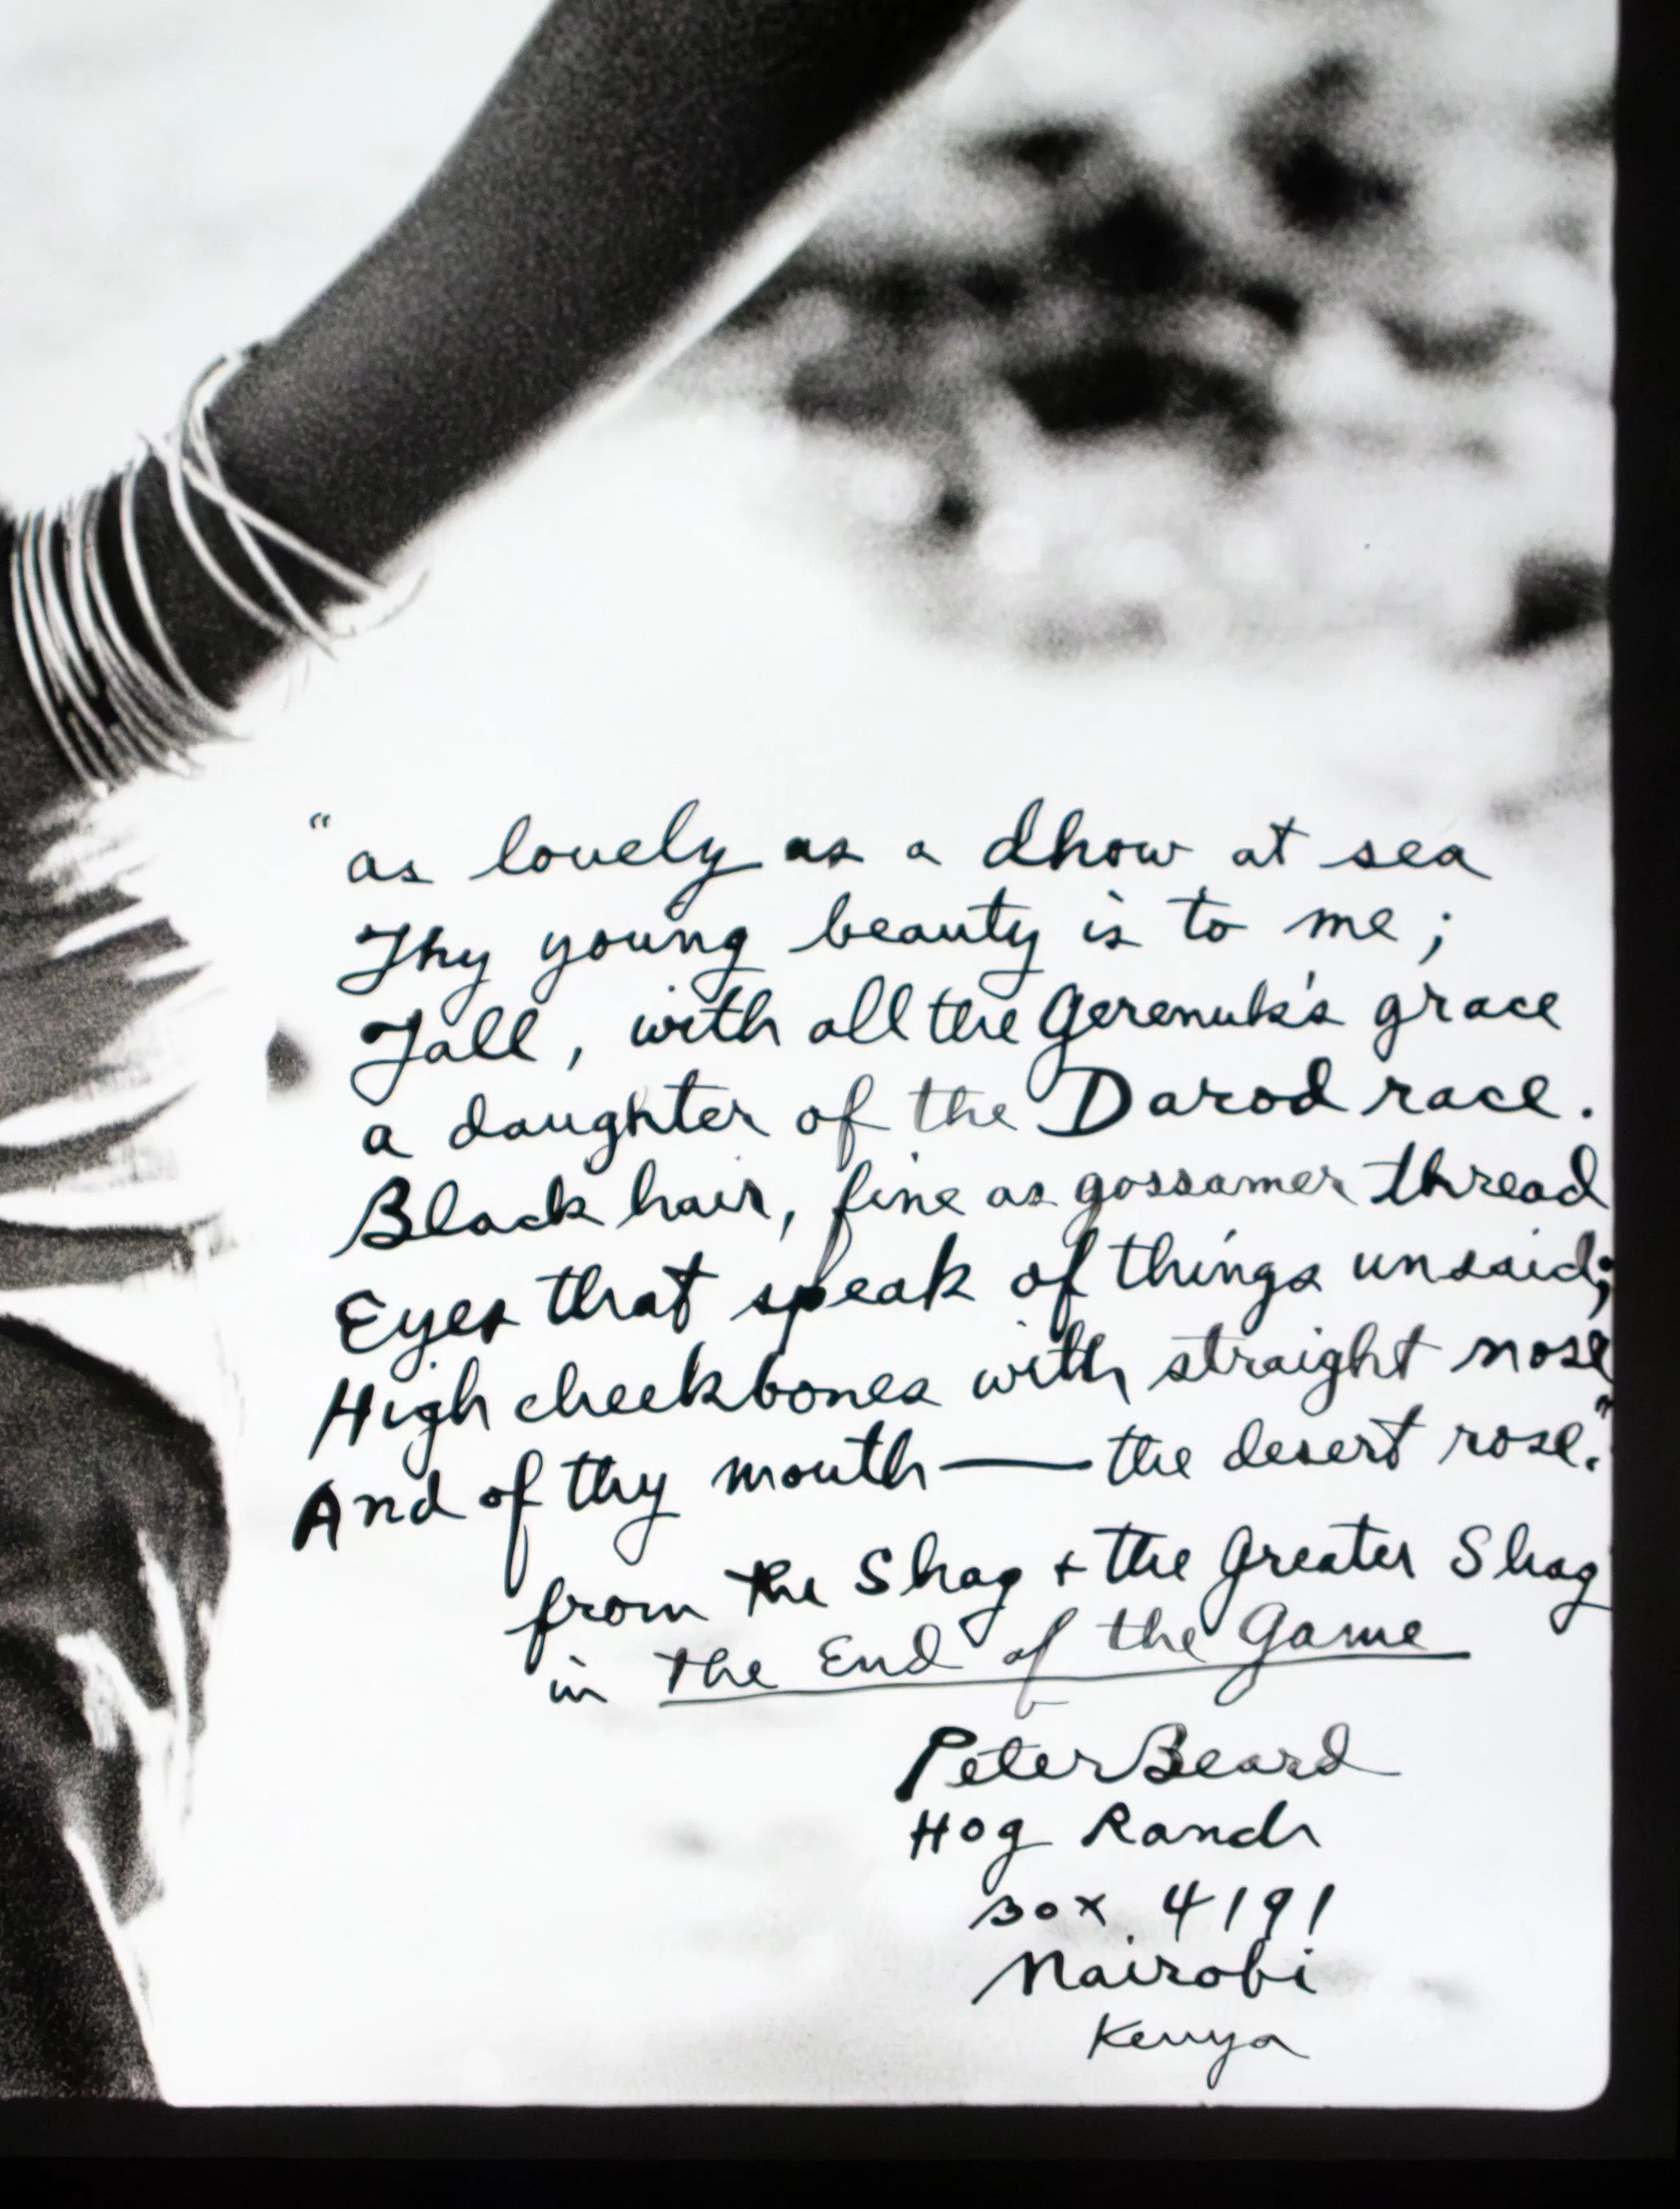 "as lovely as a dhow at sea
Thy young beauty is to me;
Tall, with all the Gerenuk's grace
a daughter of the Darod race.
Black hair, fine as gossamer thread
Eyes that speak of things unsaid;
High cheekbones with straight nose
And of thy mouth — the desert rose."
from the Shag + the Greater Shag
in The End of the Game
Peter Beard
Hog Ranch
Box 4191
Nairobi
Kenya